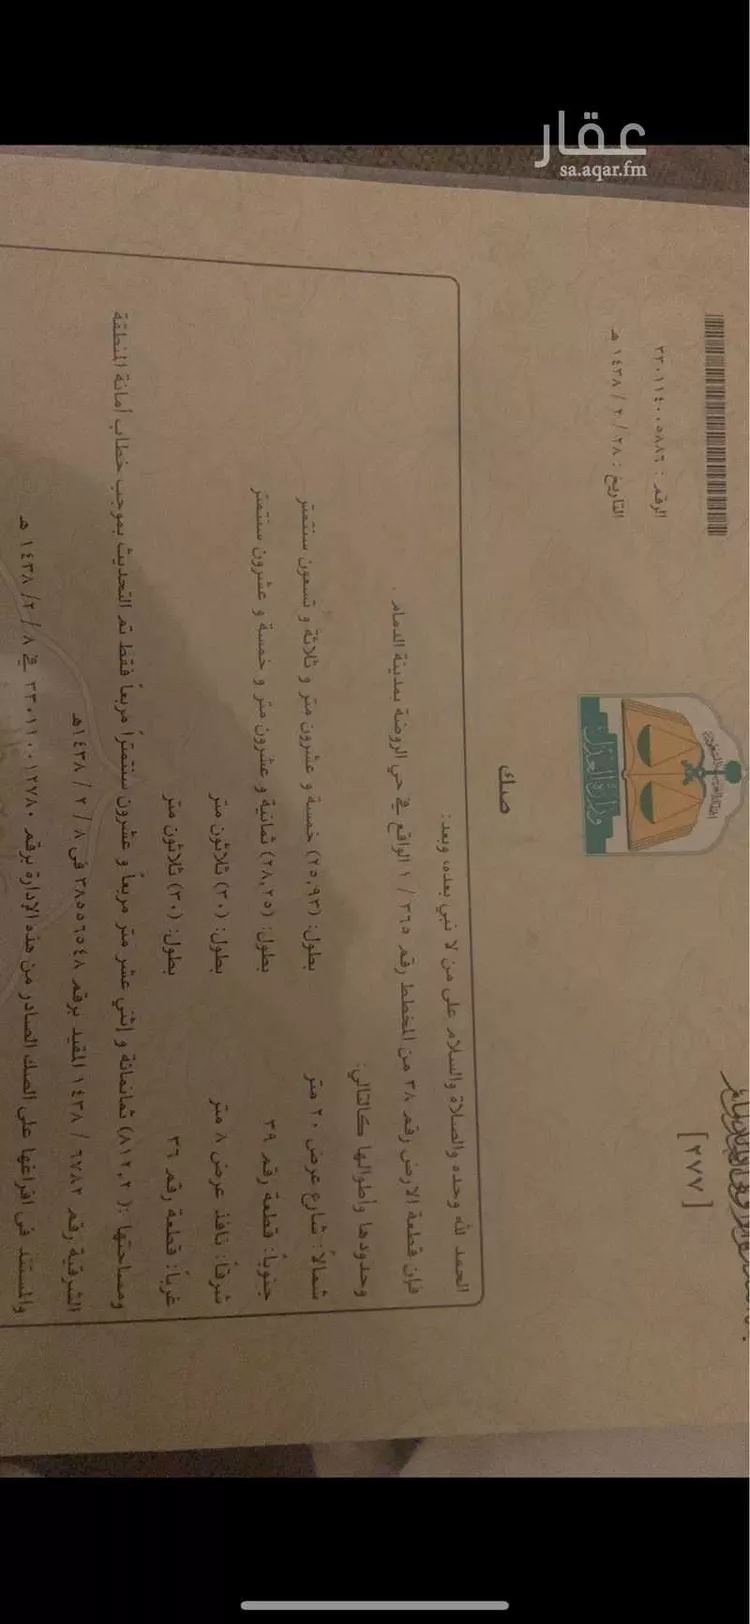 عقار
sa.aqar.fm
[ ٢٧٧ ]
وزارة العدل
الرقم : ٣٣٠١١٤٠٠٥٨٨٦
التاريخ : ٢٨ / ٢ / ١٤٣٨ هـ
صك
الحمد لله وحده والصلاة والسلام على من لا نبي بعده، وبعد:
فإن قطعة الارض رقم ٣٨ من المخطط رقم ٣٦٥ / ١ الواقع في حي الروضة بمدينة الدمام .
وحدودها وأطوالها كالتالي:
شمالاً: شارع عرض ٢٠ متر بطول: (٢٥,٩٣) خمسة و عشرون متر و ثلاثة و تسعون سنتمتر
جنوباً: قطعة رقم ٣٩ بطول: (٢٨,٢٥) ثمانية و عشرون متر و خمسة و عشرون سنتمتر
شرقاً: نافذ عرض ٨ متر بطول: (٣٠) ثلاثون متر
غرباً: قطعة رقم ٣٦ بطول: (٣٠) ثلاثون متر
ومساحتها :( ٨١٢,٢) ثمانمائة و إثني عشر متر مربعاً و عشرون سنتمتراً مربعاً فقط تم التحديث بموجب خطاب أمانة المنطقة
الشرقية رقم ٦٧٨٢ / ١٤٣٨ المقيد برقم ٣٨٥٥٦٥٤٨ في ٨ / ٢ / ١٤٣٨هـ
والمستند في افراغها على الصك الصادر من هذه الإدارة برقم ٣٣٠١١٠٠١٢٧٨٠ في ٨ / ٢ / ١٤٣٨ هـ